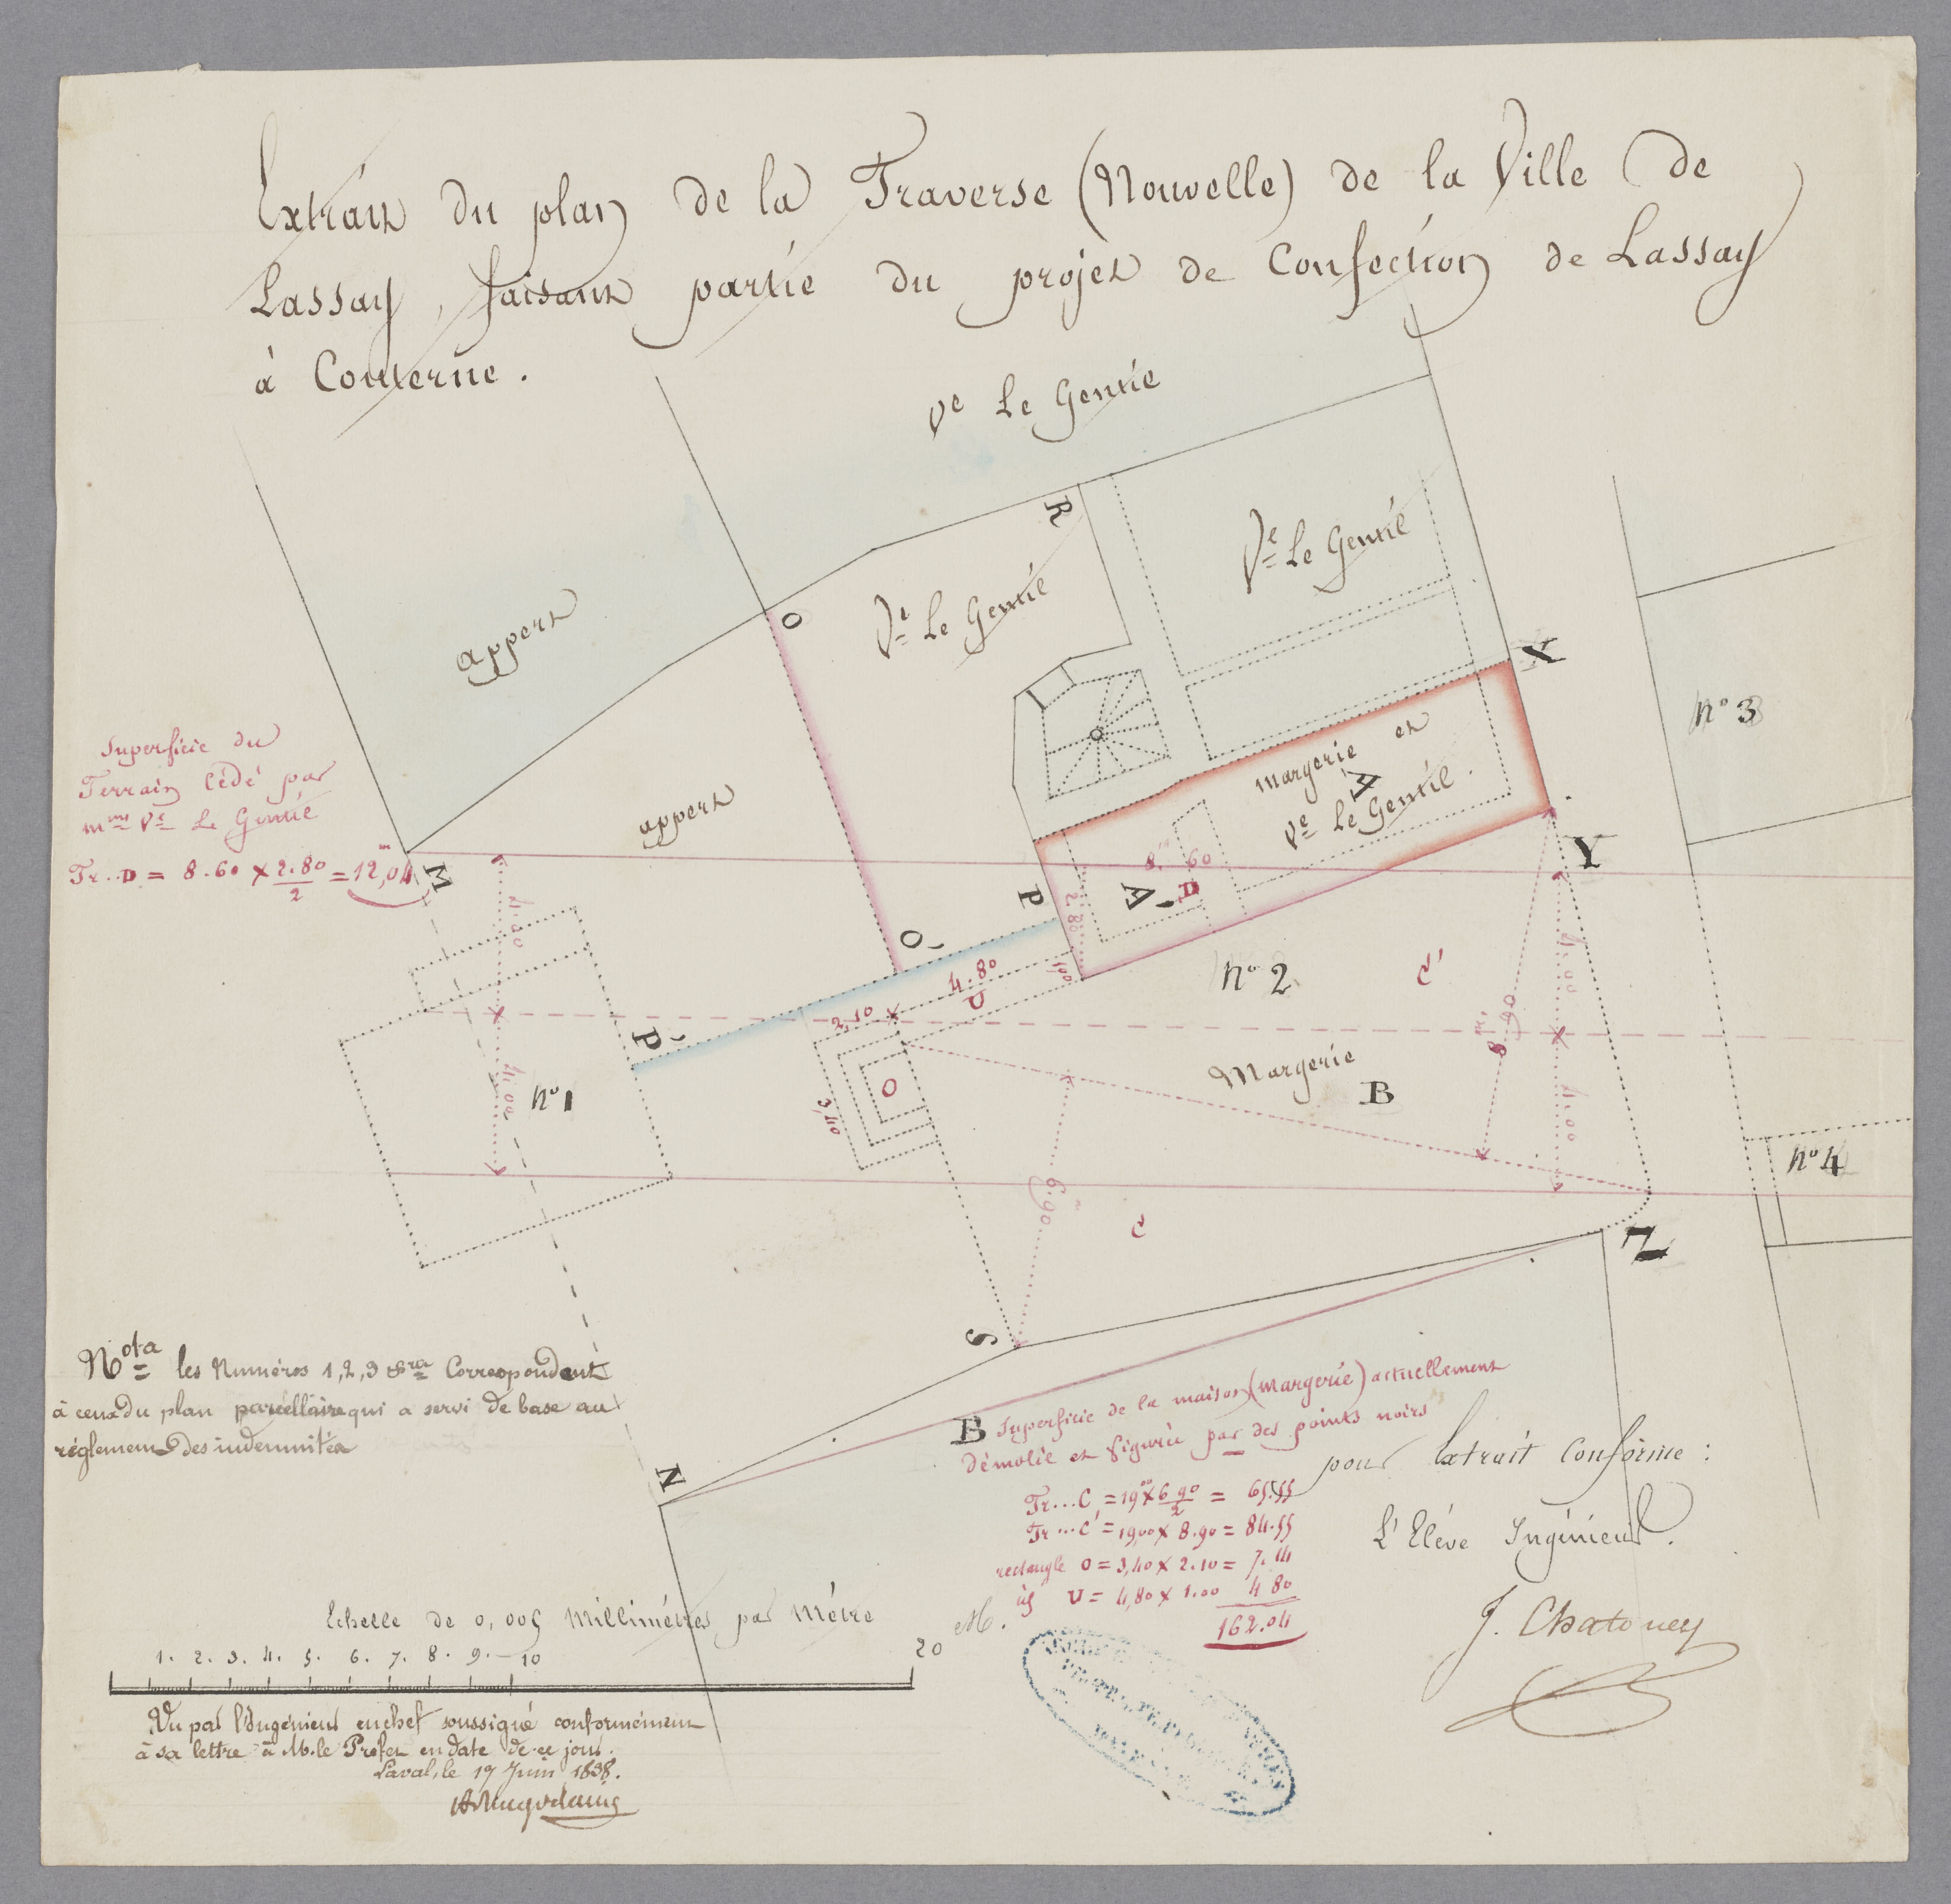 Extrait du plan de la Traverse (Nouvelle) de la Ville de
Lassay, faisant partie du projet de Confection de Lassay
à Couterne.
Ve Le Gentil
R
Ve Le Gentil
Ve Le Gentil
O
appert
X
N° 3
margerie et
A
Ve Le Gentil.
Superficie du
Terrain Cédé par
Mme Ve Le Gentil
Tr. D = 8.60 × 2.80/2 = 12,04
appert
M
Y
8m 60
D
A'
P
2.80
4.00
O'
4.80
U
1,00
N° 2
C'
4.00
8m.90
2,10
P'
O
3,40
N° 1
4.00
Margerie
B
4.00
N° 4
6m.90
C
Z
S
Nota les Numéros 1, 2, 3 &ra Correspondent
à ceux du plan parcellaire qui a servi de base au
réglement des indemnités
N
B Superficie de la maison (margerie) actuellement
démolie et figurée par des points noirs
Tr...C = 19,00 × 6.90/2 = 65.55
Tr...C' = 19,00 × 8.90 = 84.55
rectangle O = 3,40 × 2.10 = 7.14
id U = 4,80 × 1.00 4 80
162.04
pour Extrait Conforme :
L'Elève Ingénieur.
J. Chatoney
Echelle de 0,005 Millimètres par Mètre
1. 2. 3. 4. 5. 6. 7. 8. 9. 10
20 M.
Vu par l'Ingénieur en chef soussigné conformément
à sa lettre à M. le Préfet en date de ce jour.
Laval, le 17 Juin 1838.